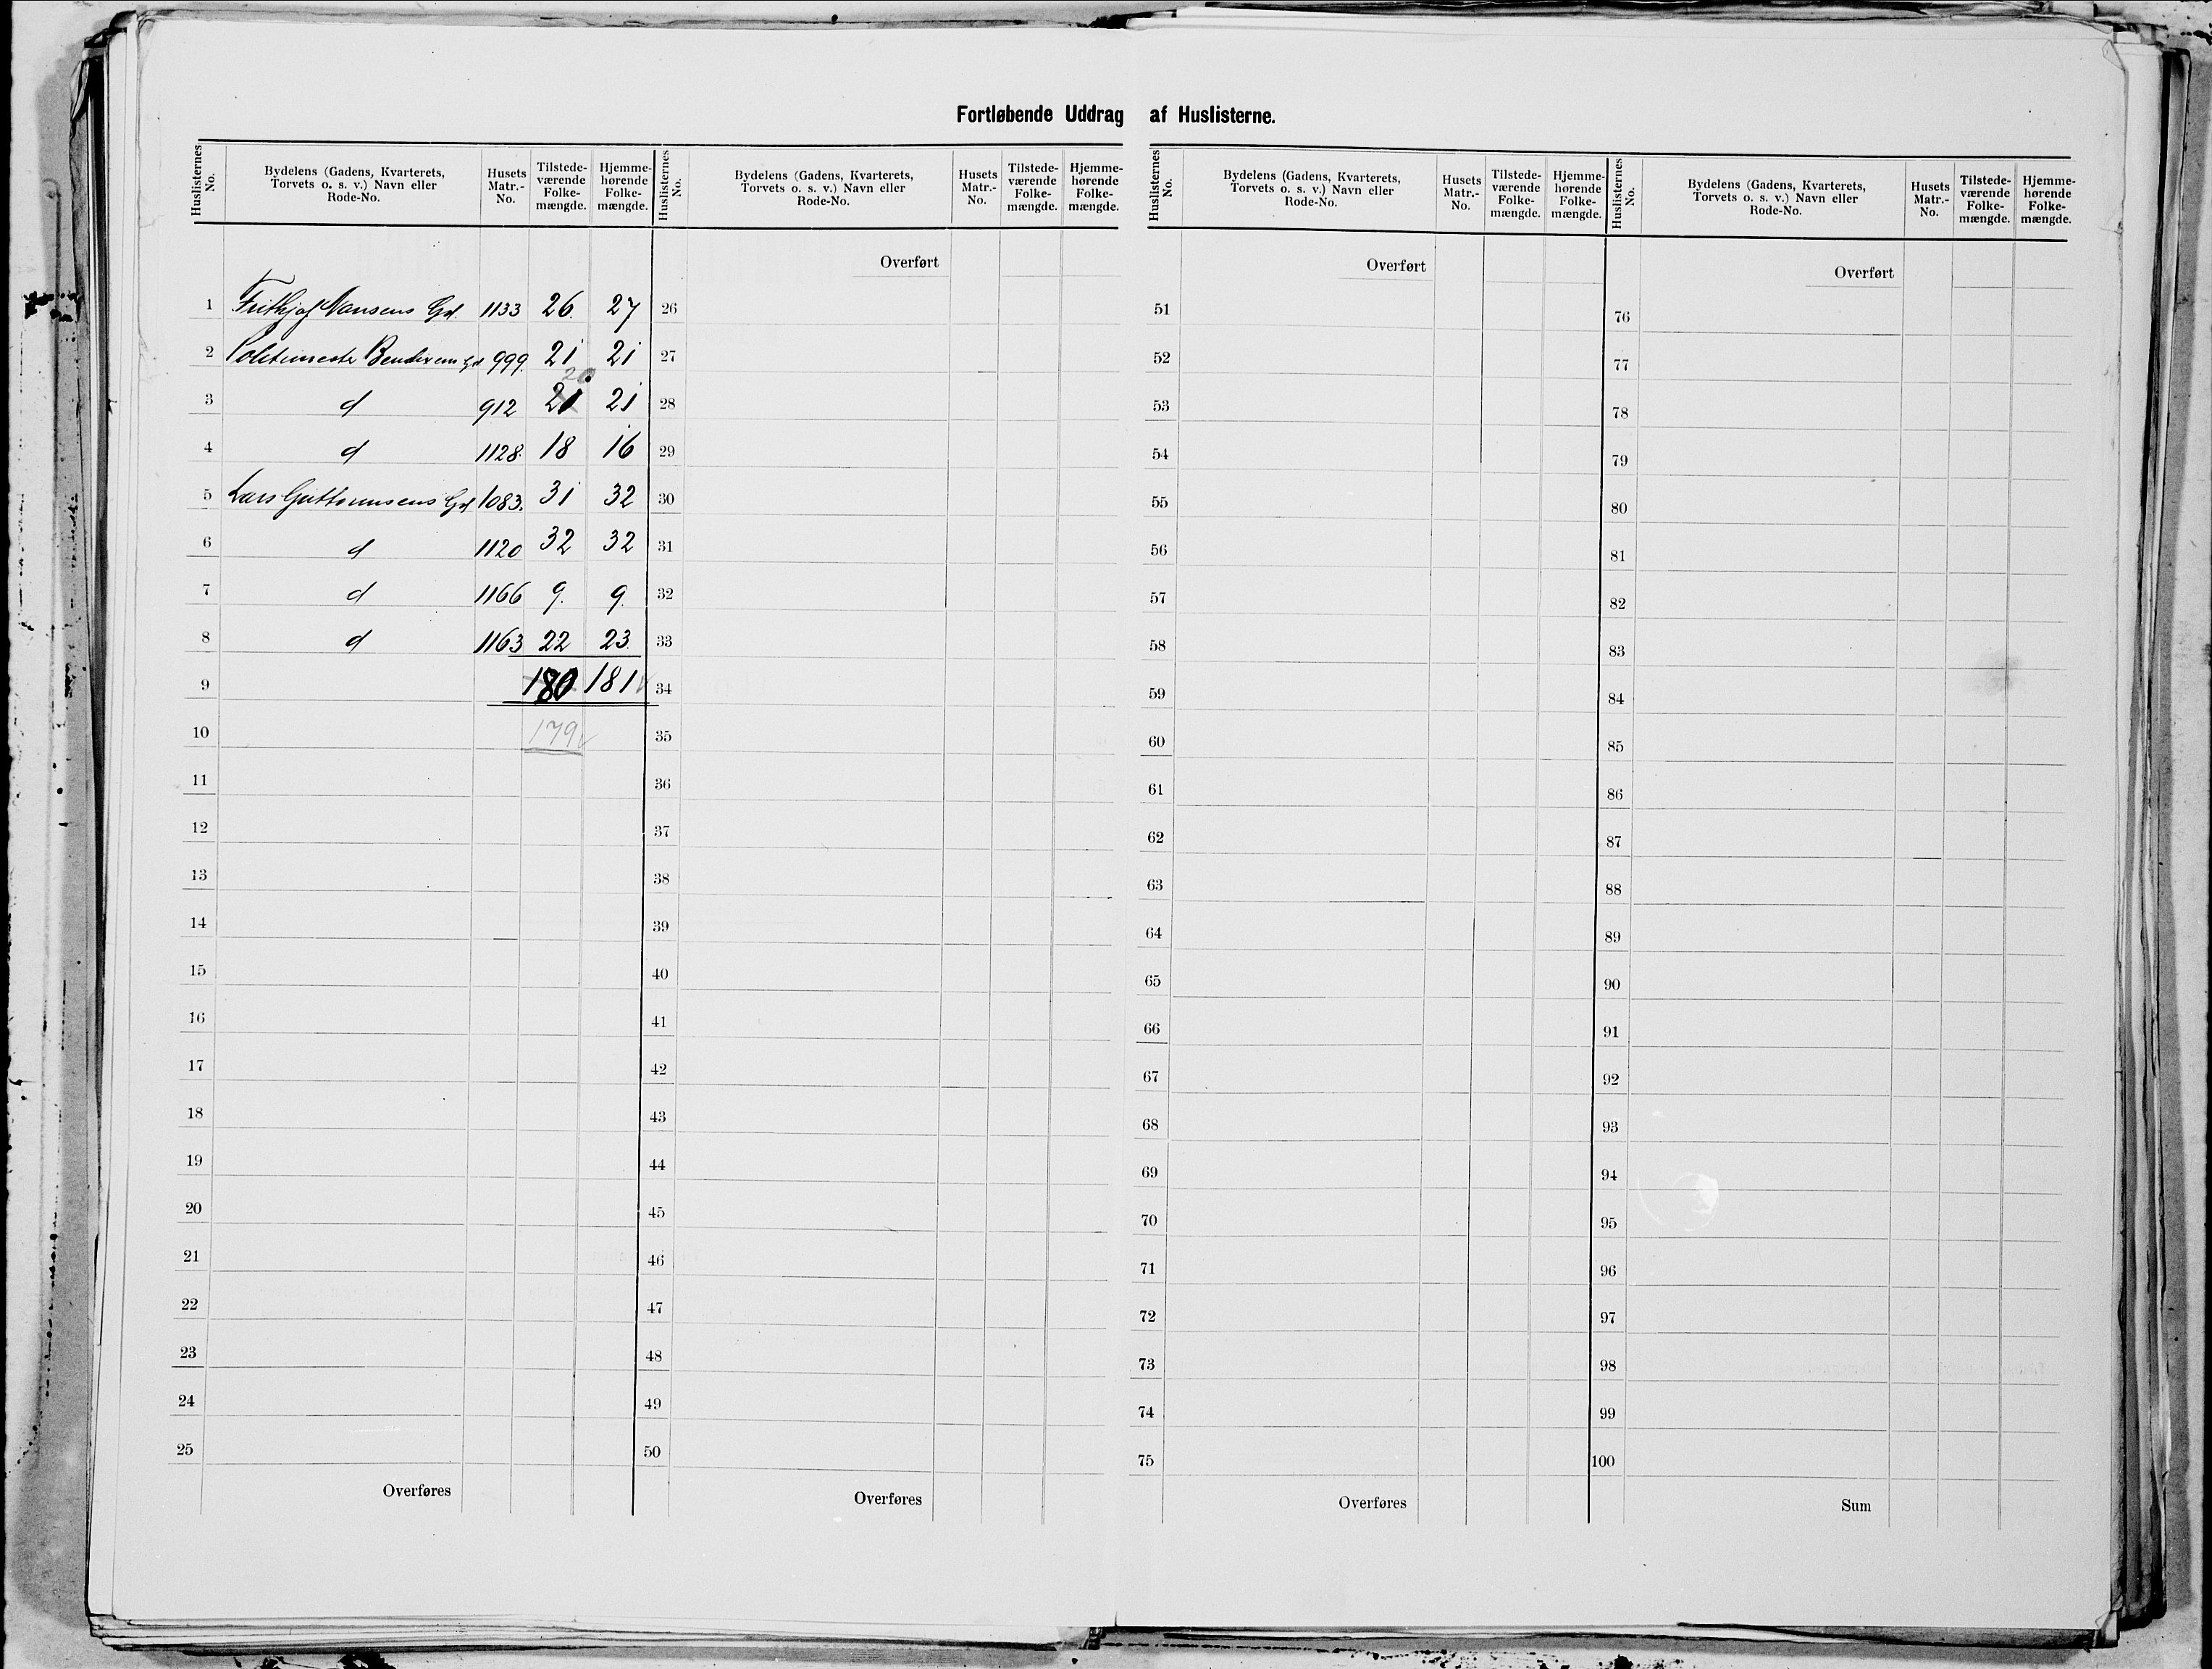 Fortløbende Uddrag af Huslisterne.
Huslisternes No. Bydelens (Gadens, Kvarterets, Torvets o. s. v.) Navn eller Rode-No. Husets Matr.-No. Tilstedeværende Folkemængde. Hjemmehørende Folkemængde.
1 Frithjof Nansens Gd. 1133 26 27
2 Politimester Bendixens Gd 999 21 21
20
3 d 912 21 21
4 d 1128 18 16
5 Lars Guttormsens Gd 1083 31 32
6 d 1120 32 32
7 d 1166 9 9
8 d 1163 22 23
9 180 181
10 179
11
12
13
14
15
16
17
18
19
20
21
22
23
24
25
Overføres
Huslisternes No. Bydelens (Gadens, Kvarterets, Torvets o. s. v.) Navn eller Rode-No. Husets Matr.-No. Tilstedeværende Folkemængde. Hjemmehørende Folkemængde.
Overført
26
27
28
29
30
31
32
33
34
35
36
37
38
39
40
41
42
43
44
45
46
47
48
49
50
Overføres
Huslisternes No. Bydelens (Gadens, Kvarterets, Torvets o. s. v.) Navn eller Rode-No. Husets Matr.-No. Tilstedeværende Folkemængde. Hjemmehørende Folkemængde.
Overført
51
52
53
54
55
56
57
58
59
60
61
62
63
64
65
66
67
68
69
70
71
72
73
74
75
Overføres
Huslisternes No. Bydelens (Gadens, Kvarterets, Torvets o. s. v.) Navn eller Rode-No. Husets Matr.-No. Tilstedeværende Folkemængde. Hjemmehørende Folkemængde.
Overført
76
77
78
79
80
81
82
83
84
85
86
87
88
89
90
91
92
93
94
95
96
97
98
99
100
Sum